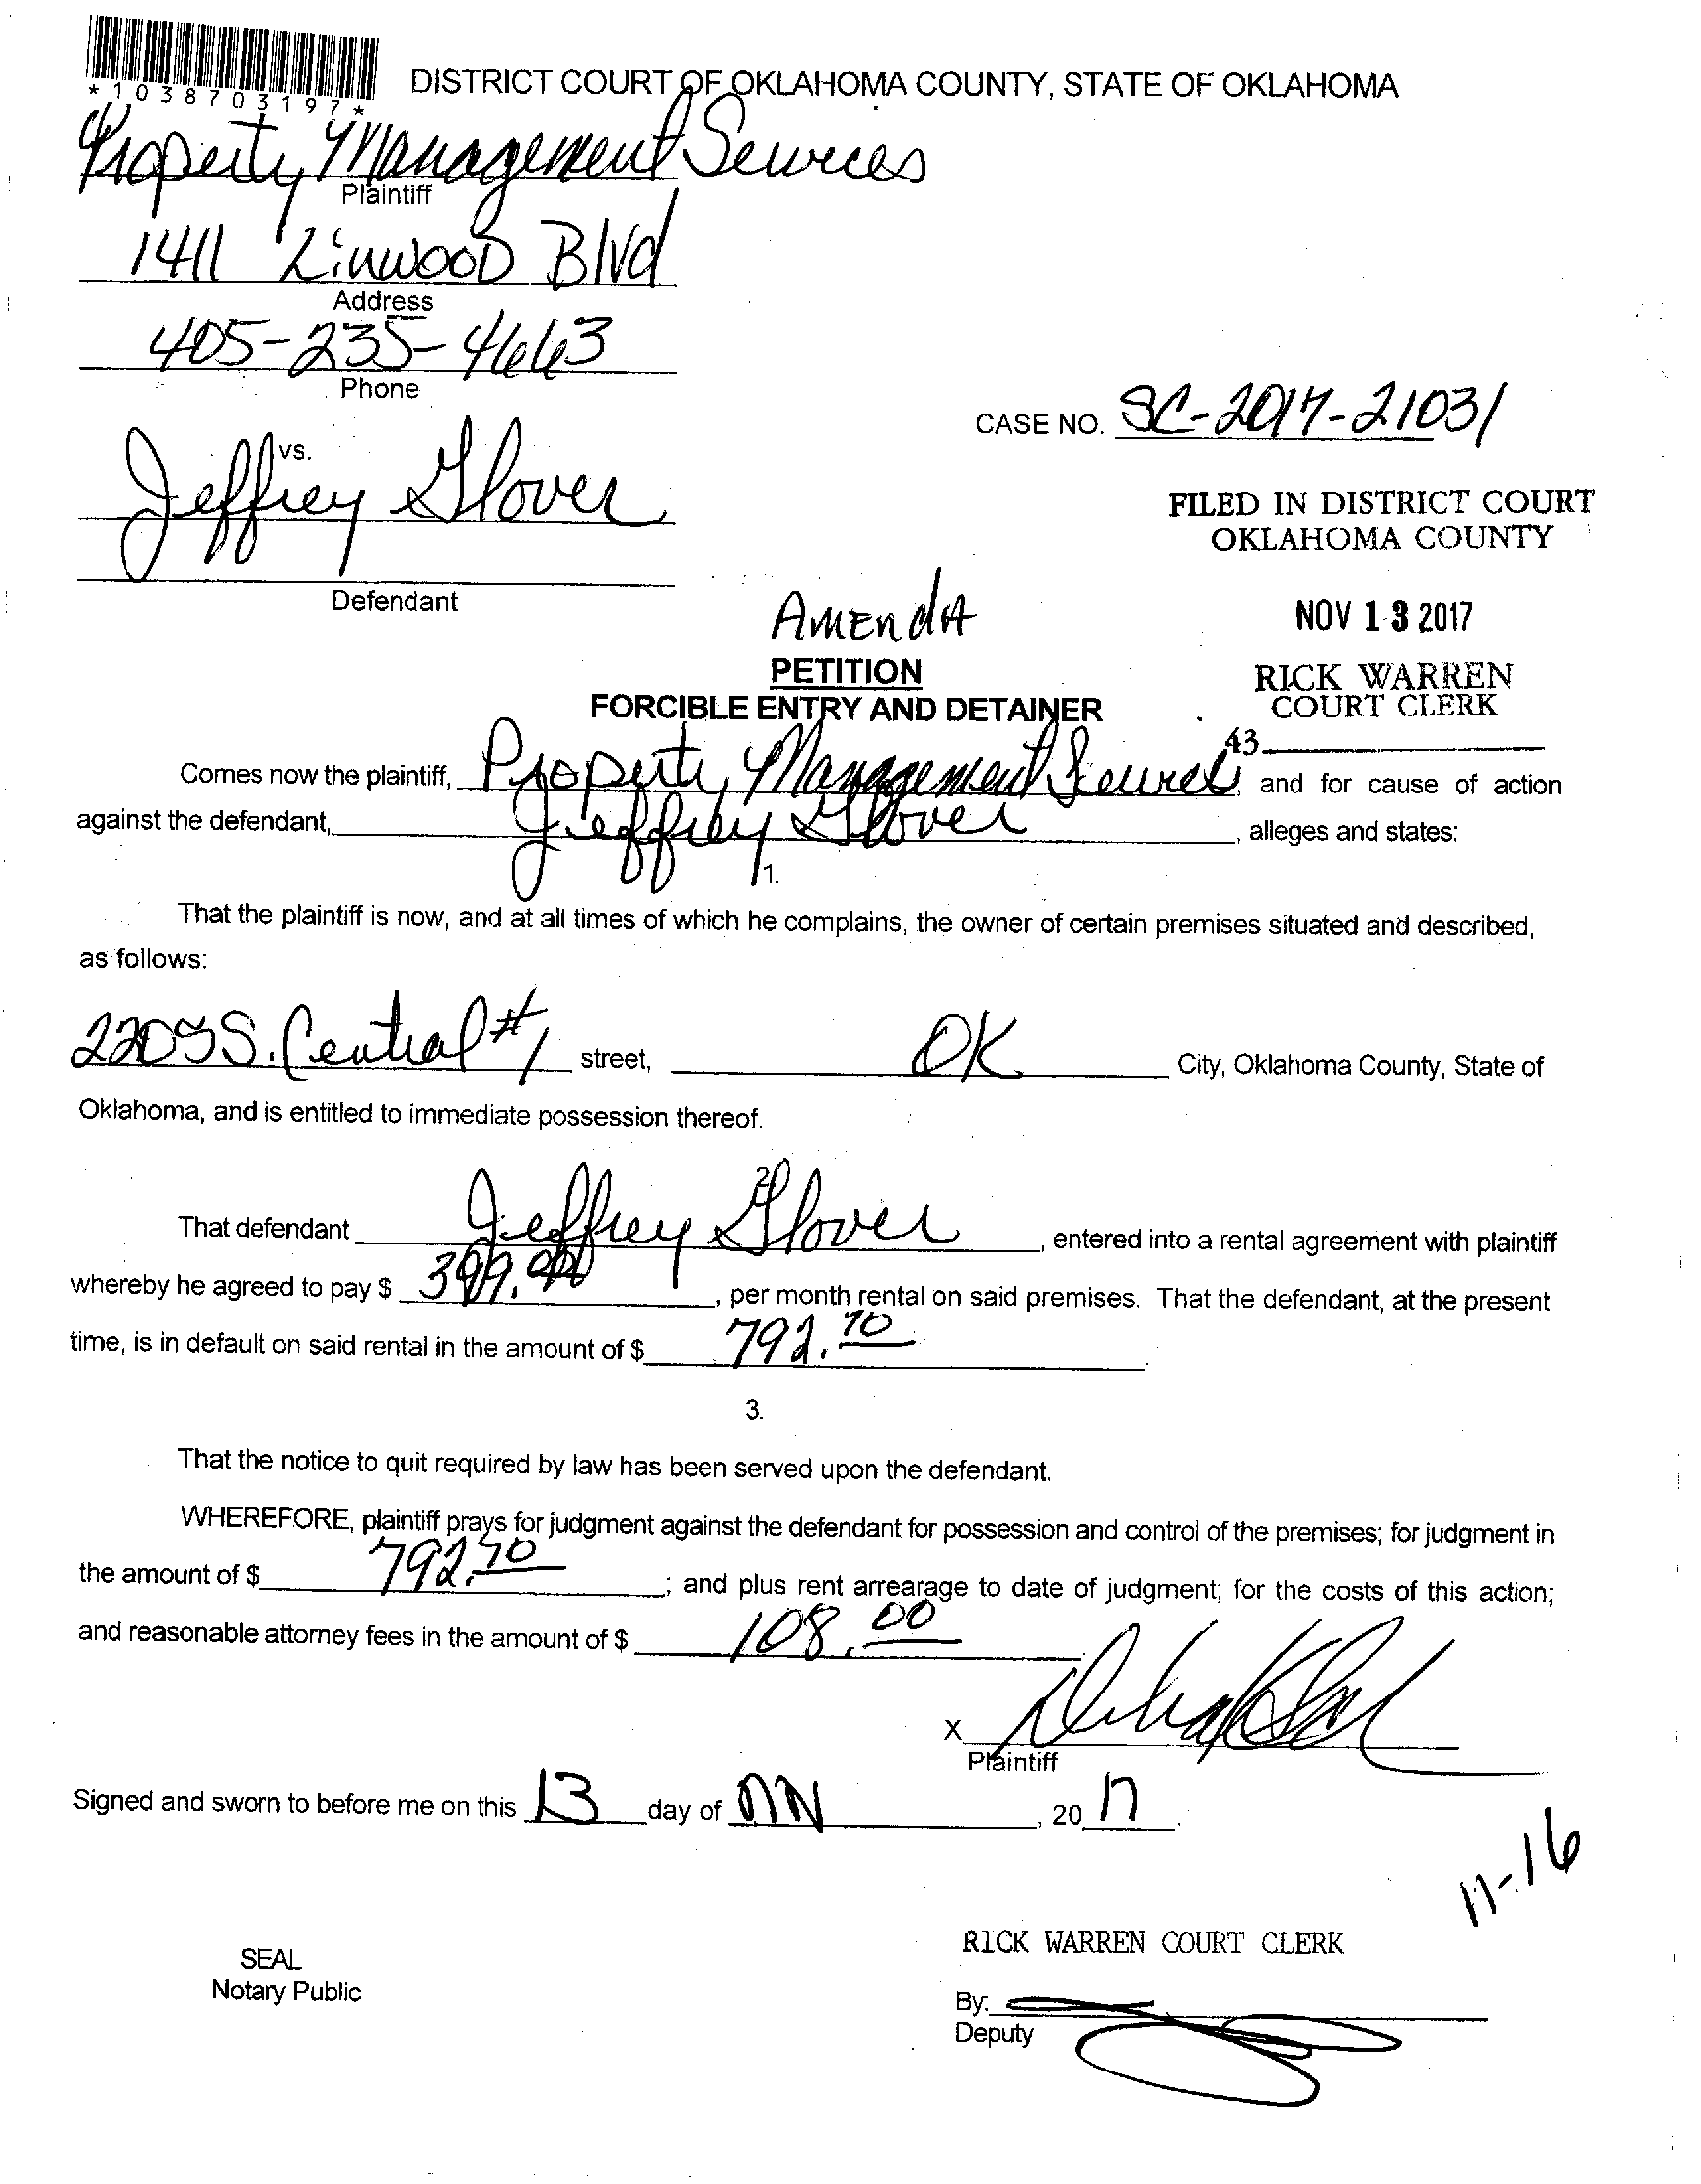 *1038703197*
DISTRICT COURT OF OKLAHOMA COUNTY, STATE OF OKLAHOMA
Property Management Services
Plaintiff
1411 Linwood Blvd
Address
405-235-4663
Phone
CASE NO. SC-2017-21031
vs.
Jeffrey Glover
FILED IN DISTRICT COURT
OKLAHOMA COUNTY
Defendant
AMEndA
NOV 13 2017
PETITION
RICK WARREN
FORCIBLE ENTRY AND DETAINER
COURT CLERK
43
Comes now the plaintiff, Property Management and for cause of action
against the defendant, Jeffrey Glover, alleges and states:
1.
That the plaintiff is now, and at all times of which he complains, the owner of certain premises situated and described,
as follows:
S. Central #1 street, OK City, Oklahoma County, State of
Oklahoma, and is entitled to immediate possession thereof.
2.
That defendant Jeffrey Glover, entered into a rental agreement with plaintiff
whereby he agreed to pay $ , per month rental on said premises. That the defendant, at the present
time, is in default on said rental in the amount of $ 792.70
3.
That the notice to quit required by law has been served upon the defendant.
WHEREFORE, plaintiff prays for judgment against the defendant for possession and control of the premises; for judgment in
the amount of $ 792.70; and plus rent arrearage to date of judgment; for the costs of this action;
and reasonable attorney fees in the amount of $ 108.00
X
Plaintiff
Signed and sworn to before me on this 13 day of , 20 17.
11-16
RICK WARREN COURT CLERK
SEAL
Notary Public
By:
Deputy